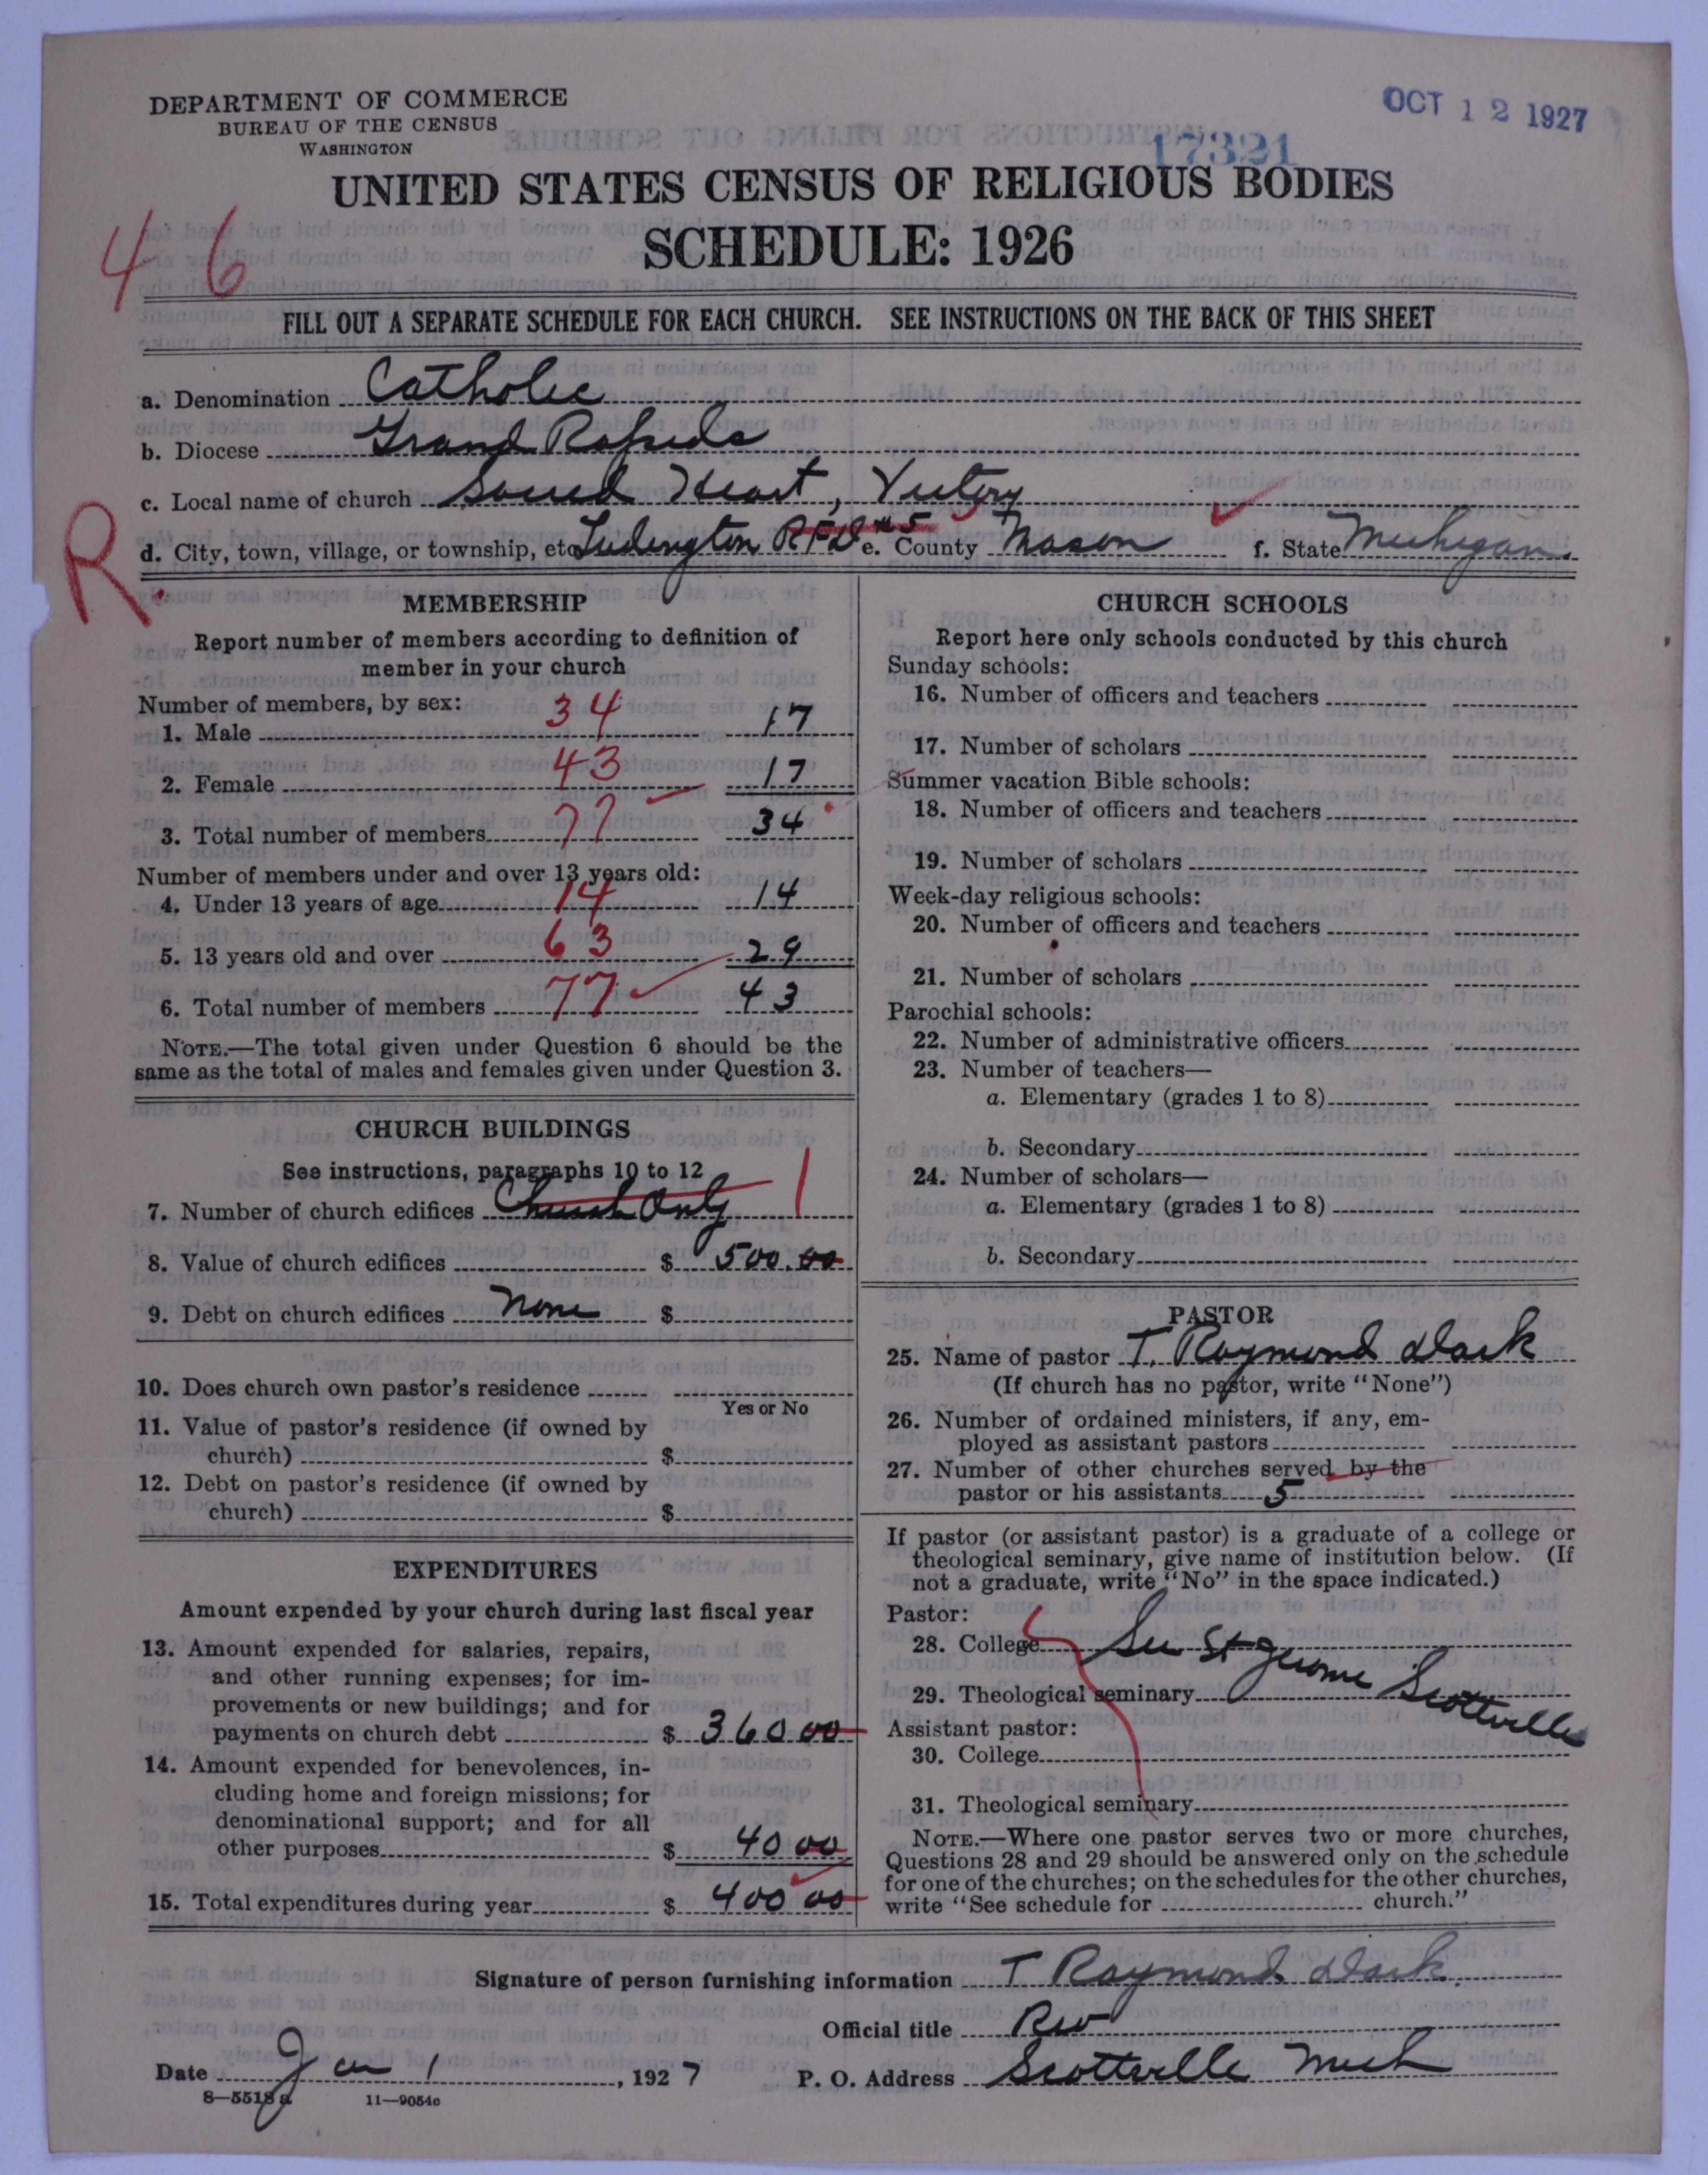 DEPARTMENT OF COMMERCE
BUREAU OF THE CENSUS
WASHINGTON
OCT 12 1927
17321
UNITED STATES CENSUS OF RELIGIOUS BODIES
SCHEDULE: 1926
46
FILL OUT A SEPARATE SCHEDULE FOR EACH CHURCH. SEE INSTRUCTIONS ON THE BACK OF THIS SHEET
a. Denomination Catholic
b. Diocese Grand Rapids
c. Local name of church Sacred Heart, Victory
R.
d. City, town, village, or township, etc. Ludington RFD #5 e. County Mason f. State Michigan.
MEMBERSHIP
Report number of members according to definition of
member in your church
Number of members, by sex:
1. Male 34 17
2. Female 43 17
3. Total number of members 77 34
Number of members under and over 13 years old:
4. Under 13 years of age 14 14
5. 13 years old and over 63 29
6. Total number of members 77 43
NOTE.—The total given under Question 6 should be the
same as the total of males and females given under Question 3.
CHURCH BUILDINGS
See instructions, paragraphs 10 to 12
7. Number of church edifices Church Only 1
8. Value of church edifices $ 500.00
9. Debt on church edifices None $
10. Does church own pastor's residence
Yes or No
11. Value of pastor's residence (if owned by
church) $
12. Debt on pastor's residence (if owned by
church) $
EXPENDITURES
Amount expended by your church during last fiscal year
13. Amount expended for salaries, repairs,
and other running expenses; for im-
provements or new buildings; and for
payments on church debt $ 360 00
14. Amount expended for benevolences, in-
cluding home and foreign missions; for
denominational support; and for all
other purposes $ 40 00
15. Total expenditures during year $ 400 00
CHURCH SCHOOLS
Report here only schools conducted by this church
Sunday schools:
16. Number of officers and teachers
17. Number of scholars
Summer vacation Bible schools:
18. Number of officers and teachers
19. Number of scholars
Week-day religious schools:
20. Number of officers and teachers
21. Number of scholars
Parochial schools:
22. Number of administrative officers
23. Number of teachers—
a. Elementary (grades 1 to 8)
b. Secondary
24. Number of scholars—
a. Elementary (grades 1 to 8)
b. Secondary
PASTOR
25. Name of pastor T. Raymond Dark
(If church has no pastor, write "None")
26. Number of ordained ministers, if any, em-
ployed as assistant pastors
27. Number of other churches served by the
pastor or his assistants 5
If pastor (or assistant pastor) is a graduate of a college or
theological seminary, give name of institution below. (If
not a graduate, write "No" in the space indicated.)
Pastor:
28. College See St Jerome Scottville
29. Theological seminary
Assistant pastor:
30. College
31. Theological seminary
NOTE.—Where one pastor serves two or more churches,
Questions 28 and 29 should be answered only on the schedule
for one of the churches; on the schedules for the other churches,
write "See schedule for church."
Signature of person furnishing information T Raymond Dark.
Official title Rev
Date Jan 1, 1927 P. O. Address Scottville Mich
8—5518 a 11—9054c